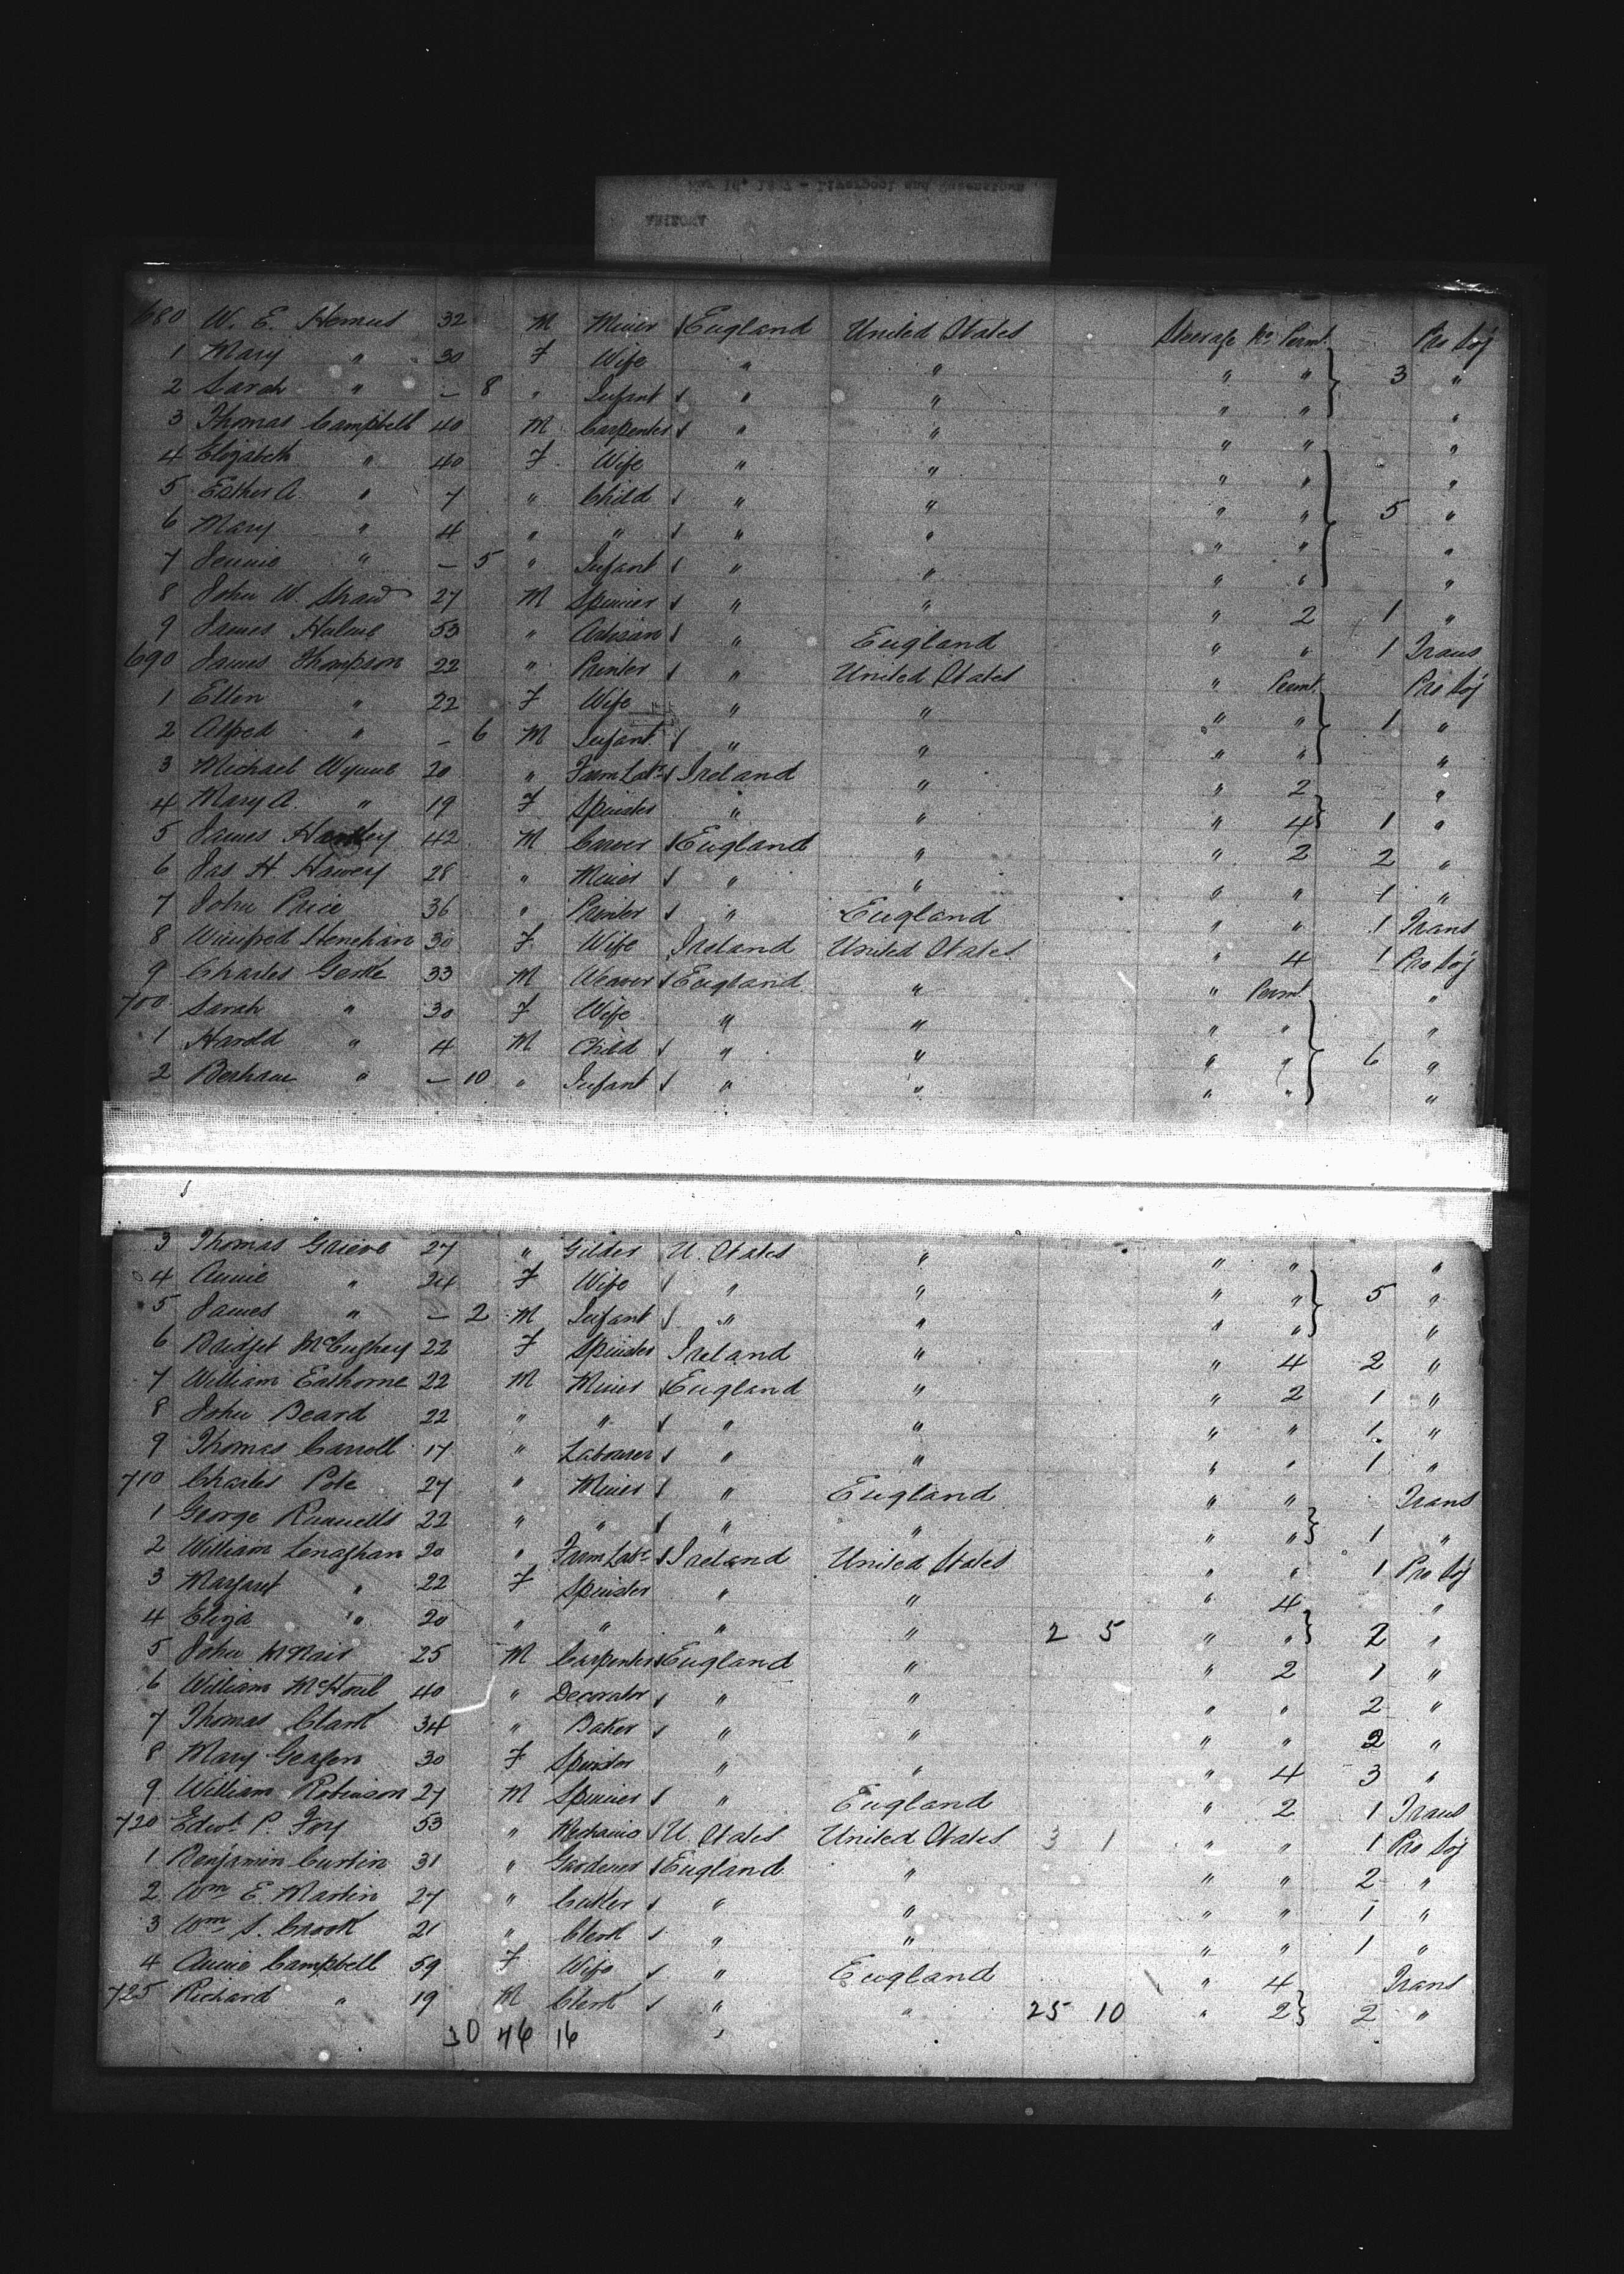 ARIZONA
680 W. E. Hemus 32 M Miner England United States Steerage No Permt. Pro Soj
1 Mary " 30 F Wife " " " " 3 "
2 Sarah " — 8 " Infant " " " " "
3 Thomas Campbell 40 M Carpenter " " " " "
4 Elizabeth " 40 F Wife " " " " "
5 Esther A. " 7 " Child " " " " 5 "
6 Mary " 4 " " " " " " "
7 Jennie " — 5 " Infant " " " " "
8 John W. Shaw 27 M Spinner " " " 2 1 "
9 James Hulme 53 " Artisan " England " " 1 Trans
690 James Thompson 22 " Printer " United States " Permt. Pro Soj
1 Ellen " 22 F Wife " " " " 1 "
2 Alfred " — 6 M Infant " " " " "
3 Michael Wynne 20 " Farm Labr Ireland " " 2 "
4 Mary A. " 19 F Spinster " " " 4 1 "
5 James 42 M Carver England " " 2 2 "
6 Jas H. 28 " Miner " " " " 1 "
7 John Price 36 " Printer " England " " 1 Trans
8 Winifred Henehan 30 F Wife Ireland United States " 4 1 Pro Soj
9 Charles 33 M Weaver England " " Permt. "
700 Sarah " 30 F Wife " " " " "
1 Harold " 4 M Child " " " " 6 "
2 " — 10 " Infant " " " " "
3 Thomas Grieve 27 " Gilder U. States " " " "
4 Annie " 24 F Wife " " " " 5 "
5 James " — 2 M Infant " " " " "
6 Bridget 22 F Spinster Ireland " " 4 2 "
7 William Eathorne 22 M Miner England " " 2 1 "
8 John Beard 22 " " " " " " 1 "
9 Thomas Carroll 17 " Labourer " " " " 1 "
710 Charles Pole 27 " Miner " England " " Trans
1 George Runnells 22 " " " " " " 1 "
2 William Lenaghan 20 " Farm Labr Ireland United States " " 1 Pro Soj
3 Margaret " 22 F Spinster " " " 4 "
4 Eliza " 20 " " " " 2 5 " " 2 "
5 John McNair 25 M Carpenter England " " 2 1 "
6 William 40 " Decorator " " " " 2 "
7 Thomas Clark 34 " Baker " " " " 2 "
8 Mary 30 F Spinster " " " 4 3 "
9 William Robinson 27 M Spinner " England " 2 1 Trans
720 Edwd. P. Fry 53 " Mechanic U. States United States 3 1 " " 1 Pro Soj
1 Benjamin Curtin 31 " Gardener England " " " 2 "
2 Wm E. Martin 27 " Cutler " " " " 1 "
3 Wm S. Crook 21 " Clerk " " " " 1 "
4 Annie Campbell 59 F Wife " England " 4 Trans
725 Richard " 19 M Clerk " " 25 10 " 2 2 "
30 46 16